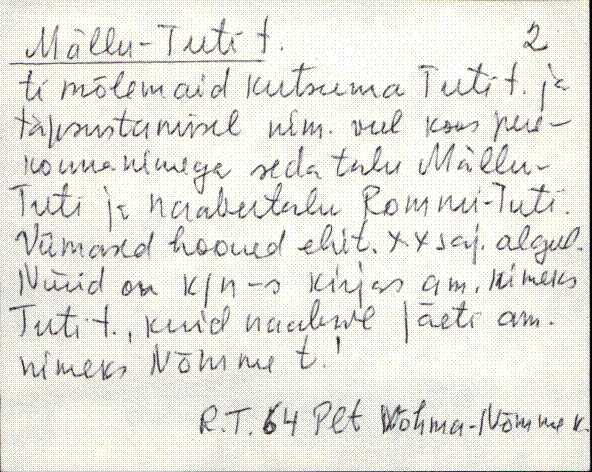 Mällu-Tuti t. 2
ti mõlemaid kutsuma Tuti t. ja
täpsustamisel nim. veel koos pere-
konnanimega seda talu Mällu-
Tuti ja naabertalu Rommi-Tuti.
Viimased hooned ehit. XX saj. algul.
Nüüd on k/n-s kirjas am. nimeks
Tuti t., kuid naabrile jäeti am.
nimeks Nõmme t.!
R.T. 64 Plt Võhma-Nõmme k.